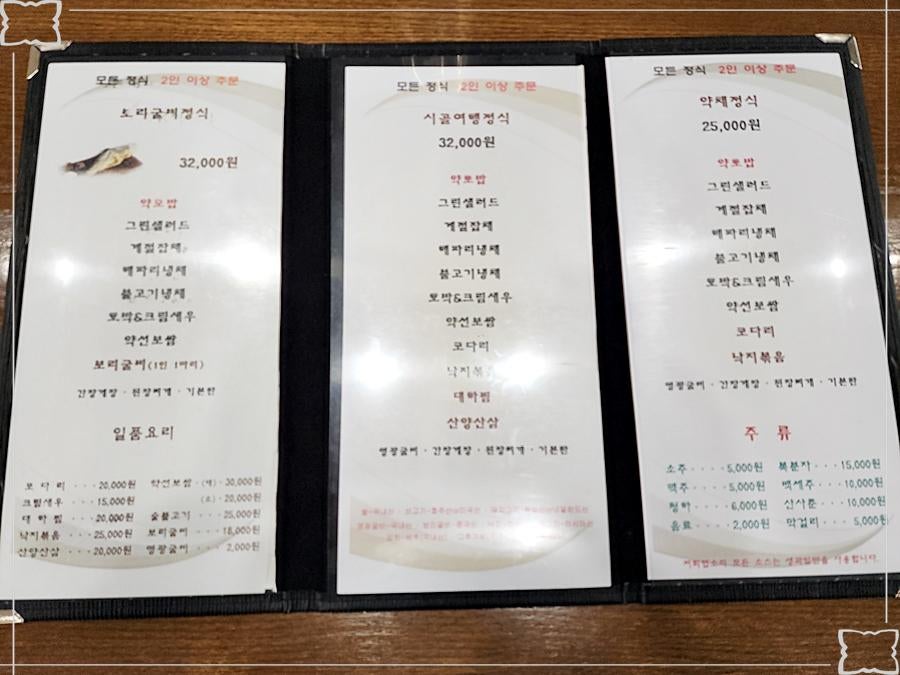 모든 정식 2인 이상 주문
보리굴비정식
32,000원
약호밥
그린샐러드
계절잡채
해파리냉채
불고기냉채
호박&크림새우
약선보쌈
보리굴비(1인 1마리)
간장게장 · 된장찌개 · 기본찬
일품요리
코 다 리 · · 20,000원 약선보쌈 · (대) · 30,000원
크림새우 · · · 15,000원 (소) · 20,000원
대 하 찜 · · · 20,000원 술불고기 · · · · 25,000원
낙지볶음 · · · 25,000원 보리굴비 · · · 18,000원
산양산삼 · · · 20,000원 영광굴비 · · · · 2,000원
모든 정식 2인 이상 주문
시골여행정식
32,000원
약호밥
그린샐러드
계절잡채
해파리냉채
불고기냉채
호박&크림새우
약선보쌈
코다리
낙지볶음
대하찜
산양산삼
영광굴비 · 간장게장 · 된장찌개 · 기본찬
모든 정식 2인 이상 주문
약채정식
25,000원
약호밥
그린샐러드
계절잡채
해파리냉채
불고기냉채
호박&크림새우
약선보쌈
코다리
낙지볶음
영광굴비 · 간장게장 · 된장찌개 · 기본찬
주 류
소주 · · · · 5,000원 복분자 · · · 15,000원
맥주 · · · · 5,000원 백세주 · · · 10,000원
청하 · · · · 6,000원 산사춘 · · · 10,000원
음료 · · · · 2,000원 막걸리 · · · 5,000원
모든 소스는 생과일만을 사용합니다.